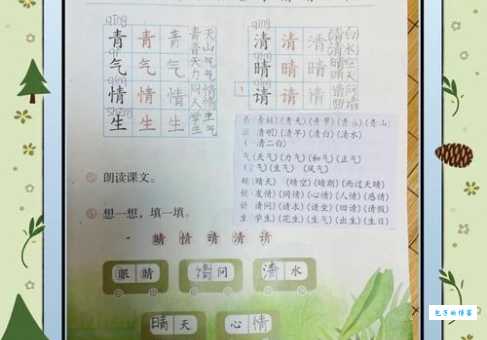 qīng
青 青 青
气 气 气
情 情 情
shēng
生 生 生
天气
力气
同情
人情
学生
生气
qīng
清 清 清
晴 晴 晴
请 请 请
清白
清水
晴空
晴天
请问
清明)(清早)(清白)(清水)
(一清二白)
气(天气)(力气)(和气)(正气)
气)(生气)(风气)
晴天)(晴空)(晴朗)(雨过天晴)
友情)(同情)(心情)(人情)(感情)
请问)(请求)(请坐)(回请)(请假)
生 学生)(花生)(生气)(出生)(生日)
朗读课文。
想一想,填一填。
睛 情 晴 清 请
眼 睛
请 问
清 水
晴 天
心 情